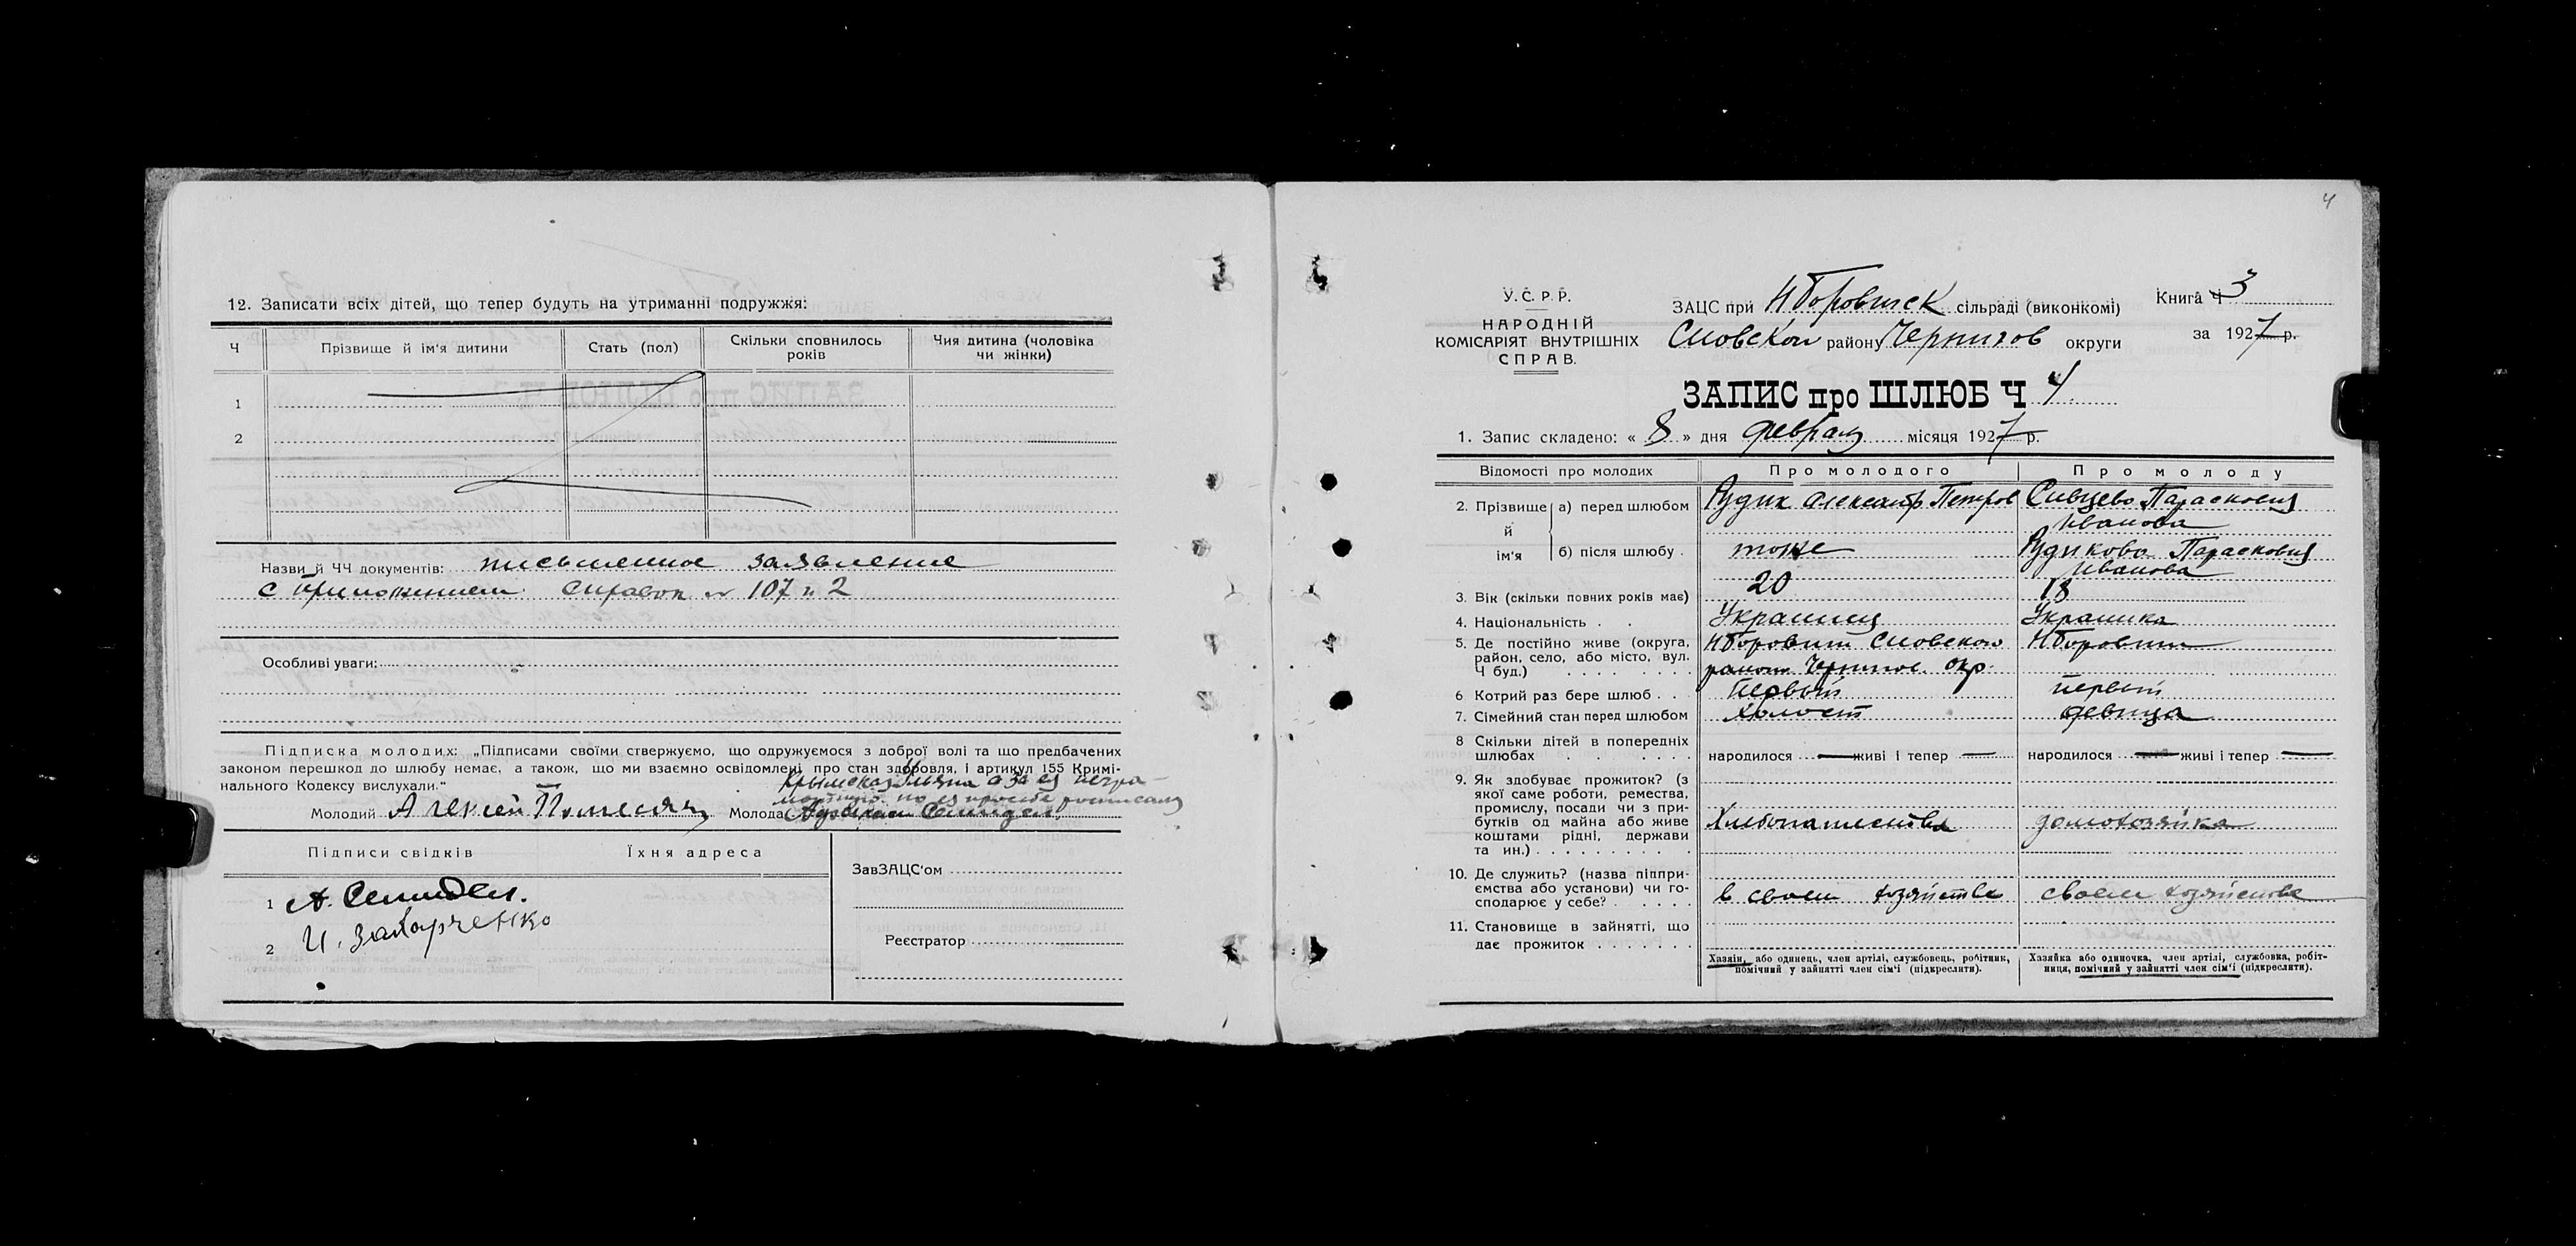 12. Записати всіх дітей, що тепер будуть на утриманні подружжя:
Ч
Прізвище й ім'я дитини
Стать (пол)
Скільки сповнилось років
Чия дитина (чоловіка чи жінки)
1
2
Назви й ЧЧ документів: письменное заявление
с приложением справок № 107 и 2
Особливі уваги:
Підписка молодих: „Підписами своїми стверджуємо, що одружуємося з доброї волі та що предбачених
законом перешкод до шлюбу немає, а також, що ми взаємно освідомлені про стан здоровля, і артикул 155 Кримі-
нального Кодексу вислухали."
а за ея негра-
мотную по ея просьбе росписался
Молодий Алексей
Молода
Підписи свідків
Їхня адреса
1 А.
2 И. Захарченко
ЗавЗАЦС'ом
Реєстратор
4
У.С.Р.Р.
НАРОДНІЙ
КОМІСАРІЯТ ВНУТРІШНІХ
СПРАВ.
ЗАЦС при НБоровичск сільраді (виконкомі)
Сновской району Чернигов округи
Книга Ч 3
за 1927 р.
ЗАПИС про ШЛЮБ Ч 4.
1. Запис складено: « 8 » дня февраля місяця 1927 р.
Відомості про молодих
Про молодого
Про молоду
2. Прізвище й ім'я
а) перед шлюбом
Рудик Александр Петров
Сивцево Парасковия
Иванова
б) після шлюбу
тоже
Рудиково Парасковия
Иванова
3. Вік (скільки повних років має)
20
18
4. Національність
Украинец
Украинка
5. Де постійно живе (округа,
район, село, або місто, вул.
Ч буд.)
НБоровичи Сновского
района Чернигов. окр.
НБоровичи
6 Котрий раз бере шлюб
Первый
первый
7. Сімейний стан перед шлюбом
Холост
девица
8 Скільки дітей в попередніх
шлюбах
народилося — живі і тепер —
народилося — живі і тепер —
9. Як здобуває прожиток? (з
якої саме роботи, ремества,
промислу, посади чи з при-
бутків од майна або живе
коштами рідні, держави
та ин.)
Хлебопашества
домохозяйка
10. Де служить? (назва піппри-
ємства або установи) чи го-
сподарює у себе?
в своем хозяйстве
своем хозяйстве
11. Становище в зайнятті, що
дає прожиток
Хазяїн, або одинець, член артілі, службовець, робітник,
помічний у зайнятті член сім'ї (підкреслити).
Хазяйка або одиночка, член артілі, службовка, робіт-
ниця, помічний у зайнятті член сім'ї (підкреслити).